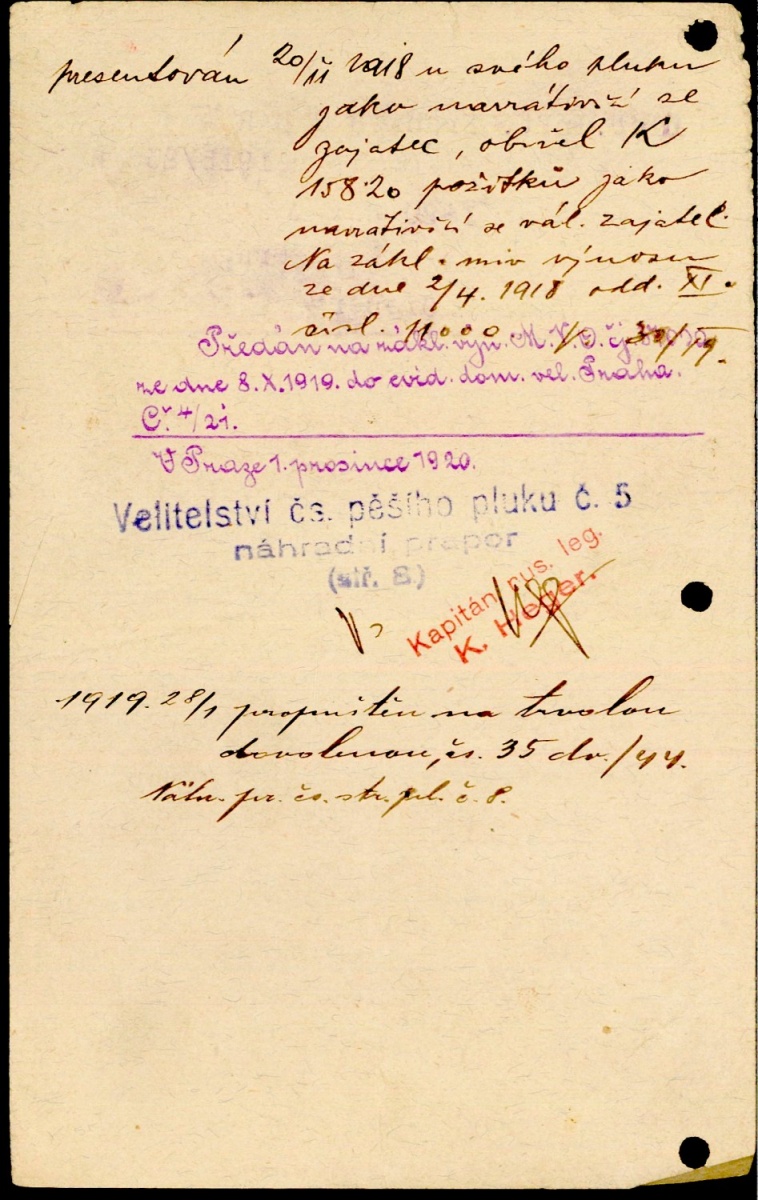 presentován 20/II 1918 u svého pluku
jako navrátivší se
zajatec, obdržel K
158.20 požitků jako
navrátivší se vál. zajatec.
Na zákl. min výnosu
ze dne 2/4. 1918 odd. XI.
čísl. 11000
Předán na zákl. výn. M.N.O. čj.
ze dne 8.X.1919. do evid. dom. vel. Praha.
Č. 4/21.
V Praze 1. prosince 1920.
Velitelství čs. pěšího pluku č. 5
náhradní prapor
(stř. 8.)
Kapitán rus. leg.
K. Heger.
1919. 28/1 propuštěn na trvalou
dovolenou, čs. 35 dv./44.
Náhr. pr. čs. stř. pl. č. 8.